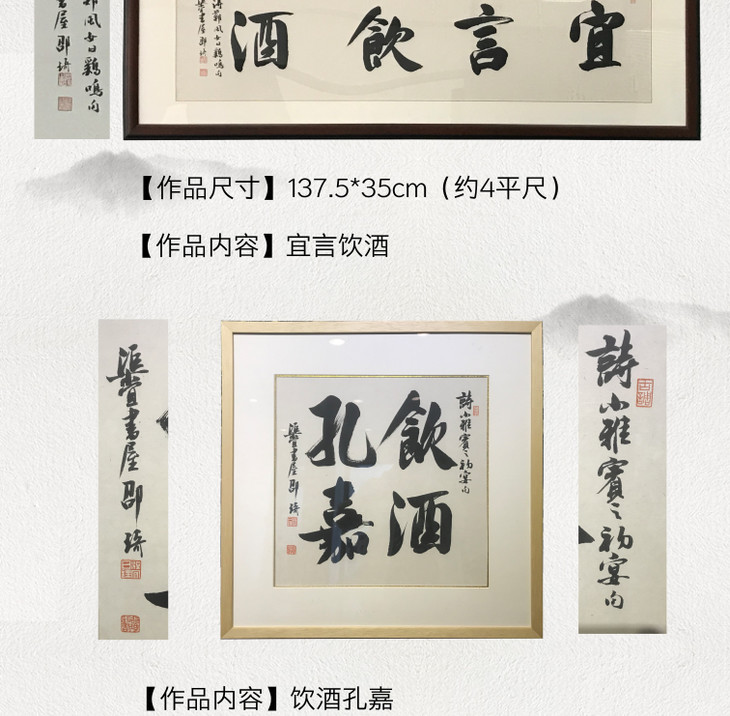 鄭風女曰鷄鳴句
書屋 邵琦
宜言飲酒
【作品尺寸】137.5*35cm（约4平尺）
【作品内容】宜言饮酒
詩小雅賓之初宴句
飲酒
孔嘉
書屋邵琦
詩小雅賓之初宴句
書屋邵琦
【作品内容】饮酒孔嘉